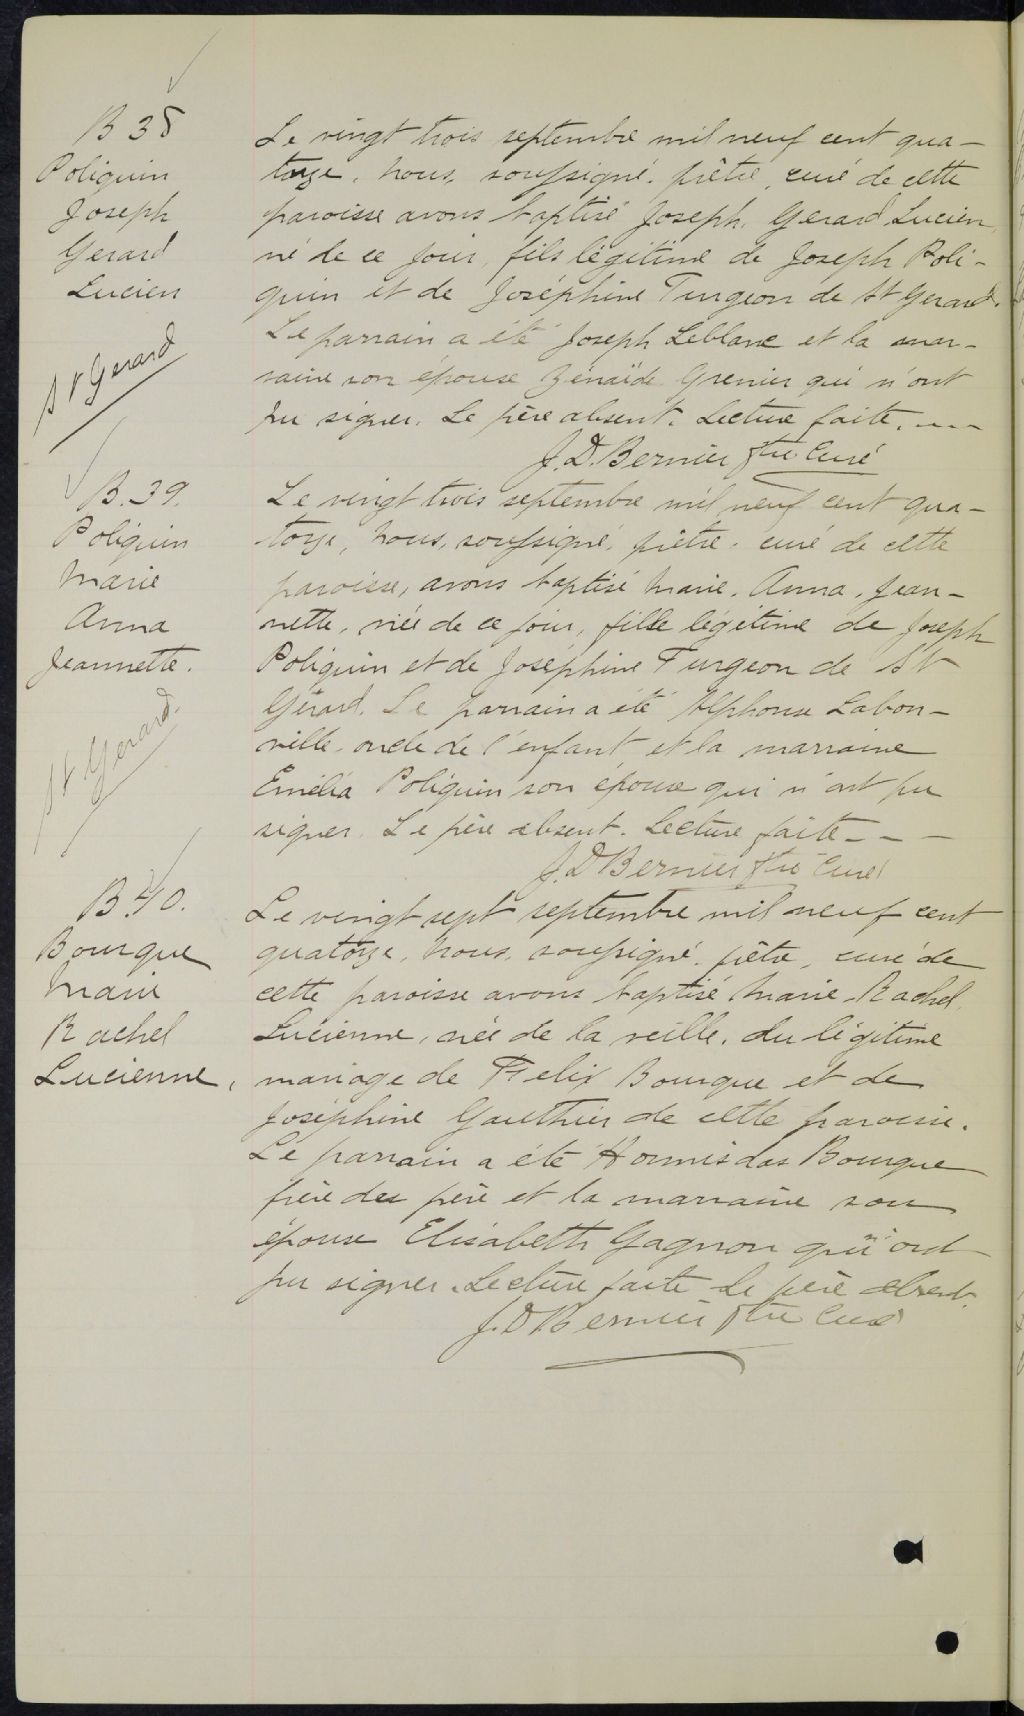 B 38
Poliquin
Joseph
Gerard
Lucien
St Gerard
Le vingt trois septembre mil neuf cent qua-
torze, nous, soussigné, prêtre, curé de cette
paroisse avons baptisé Joseph, Gerard Lucien,
né de ce jour, fils légitime de Joseph Poli-
quin et de Joséphine Turgeon de St Gerard.
Le parrain a été Joseph Leblanc et la mar-
raine son épouse Zénaïde Grenier qui n'ont
pu signer. Le père absent. Lecture faite. ---
J. D. Bernier Ptre Curé
B. 39.
Poliquin
Marie
Anna
Jeannette.
St Gerard.
Le vingt trois septembre mil neuf cent qua-
torze, nous, soussigné, prêtre, curé de cette
paroisse, avons baptisé Marie, Anna, Jean-
nette, née de ce jour, fille légitime de Joseph
Poliquin et de Joséphine Turgeon de St
Gérard. Le parrain a été Alphonse Labon-
ville oncle de l'enfant et la marraine
Emélia Poliquin son épouse qui n'ont pu
signer. Le père absent. Lecture faite - - -
J. D Bernier Ptre Curé
B 40.
Bourque
Marie
Rachel
Lucienne,
Le vingt sept septembre mil neuf cent
quatorze, nous, soussigné, prêtre, curé de
cette paroisse avons baptisé Marie Rachel,
Lucienne, née de la veille, du légitime
mariage de Felix Bourque et de
Joséphine Gauthier de cette paroisse.
Le parrain a été Hormisdas Bourque
frère du père et la marraine son
épouse Elisabeth Gagnon qui n'ont
pu signer. Lecture faite Le père absent.
J. D Bernier Ptre Curé